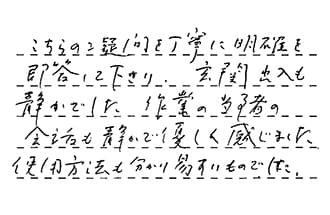 こちらのご質問を丁寧に明確を
即答して下さり、玄関出入も
静かでした 作業の当事者の
会話も静かで優しく感じました
使用方法も分かり易いものでした。